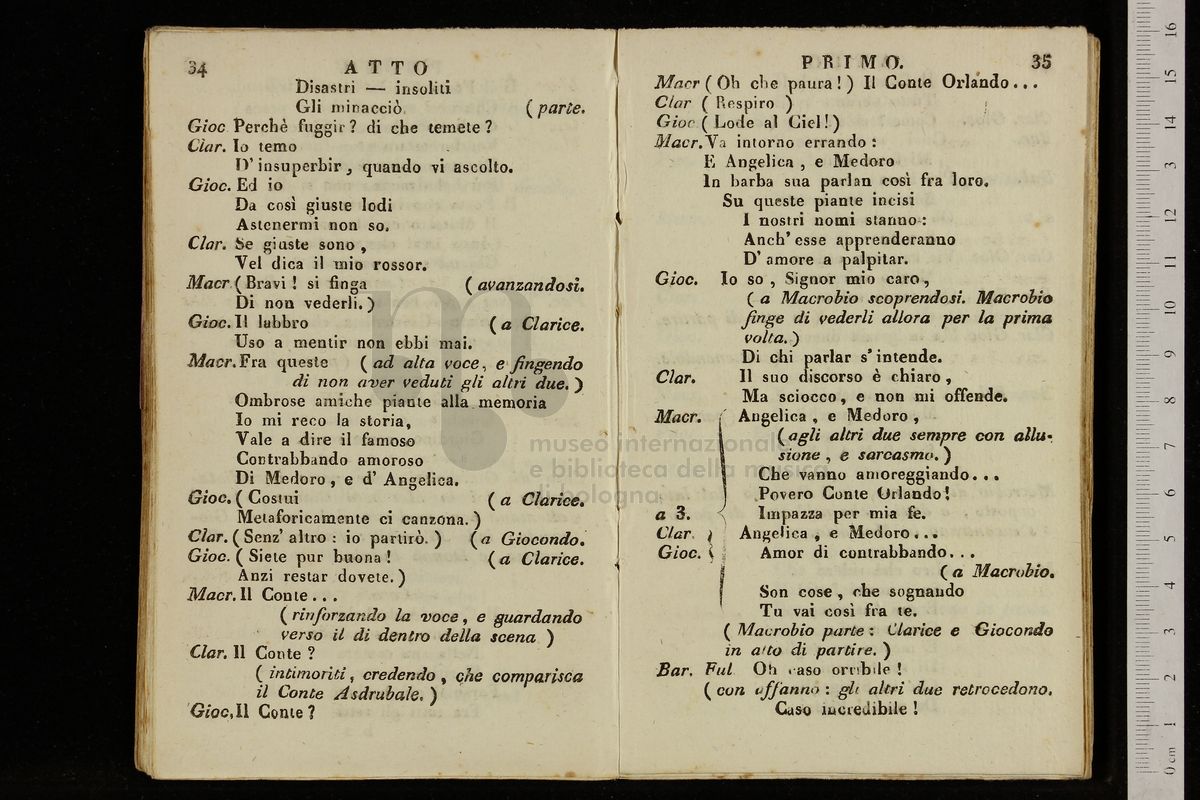 34
ATTO
Disastri — insoliti
Gli minacciò. (parte.
Gioc. Perchè fuggir? di che temete?
Clar. Io temo
D' insuperbir, quando vi ascolto.
Gioc. Ed io
Da così giuste lodi
Astenermi non so.
Clar. Se giuste sono,
Vel dica il mio rossor.
Macr (Bravi! si finga (avanzandosi.
Di non vederli.)
Gioc. Il labbro (a Clarice.
Uso a mentir non ebbi mai.
Macr. Fra queste (ad alta voce, e fingendo
di non aver veduti gli altri due.)
Ombrose amiche piante alla memoria
Io mi reco la storia,
Vale a dire il famoso
Contrabbando amoroso
Di Medoro, e d' Angelica.
Gioc. (Costui (a Clarice.
Metaforicamente ci canzona.)
Clar. (Senz' altro: io partirò.) (a Giocondo.
Gioc. (Siete pur buona! (a Clarice.
Anzi restar dovete.)
Macr. Il Conte...
(rinforzando la voce, e guardando
verso il di dentro della scena)
Clar. Il Conte?
(intimoriti, credendo, che comparisca
il Conte Asdrubale.)
Gioc, Il Conte?
PRIMO.
35
Macr (Oh che paura!) Il Conte Orlando...
Clar (Respiro)
Gioc (Lode al Ciel!)
Macr. Va intorno errando:
E Angelica, e Medoro
In barba sua parlan così fra loro.
Su queste piante incisi
I nostri nomi stanno:
Anch' esse apprenderanno
D' amore a palpitar.
Gioc. Io so, Signor mio caro,
(a Macrobio scoprendosi. Macrobio
finge di vederli allora per la prima
volta.)
Di chi parlar s' intende.
Clar. Il suo discorso è chiaro,
Ma sciocco, e non mi offende.
Macr. Angelica, e Medoro,
(agli altri due sempre con allu-
sione, e sarcasmo.)
Che vanno amoreggiando...
Povero Conte Orlando!
a 3. Impazza per mia fe.
Clar. Angelica, e Medoro...
Gioc. Amor di contrabbando...
(a Macrobio.
Son cose, che sognando
Tu vai così fra te.
(Macrobio parte: Clarice e Giocondo
in atto di partire.)
Bar. Ful Oh caso orribile!
(con affanno: gli altri due retrocedono.
Caso incredibile!
museo internazionale
e biblioteca della musica
di bologna
0 cm 1 2 3 4 5 6 7 8 9 10 11 12 13 14 15 16